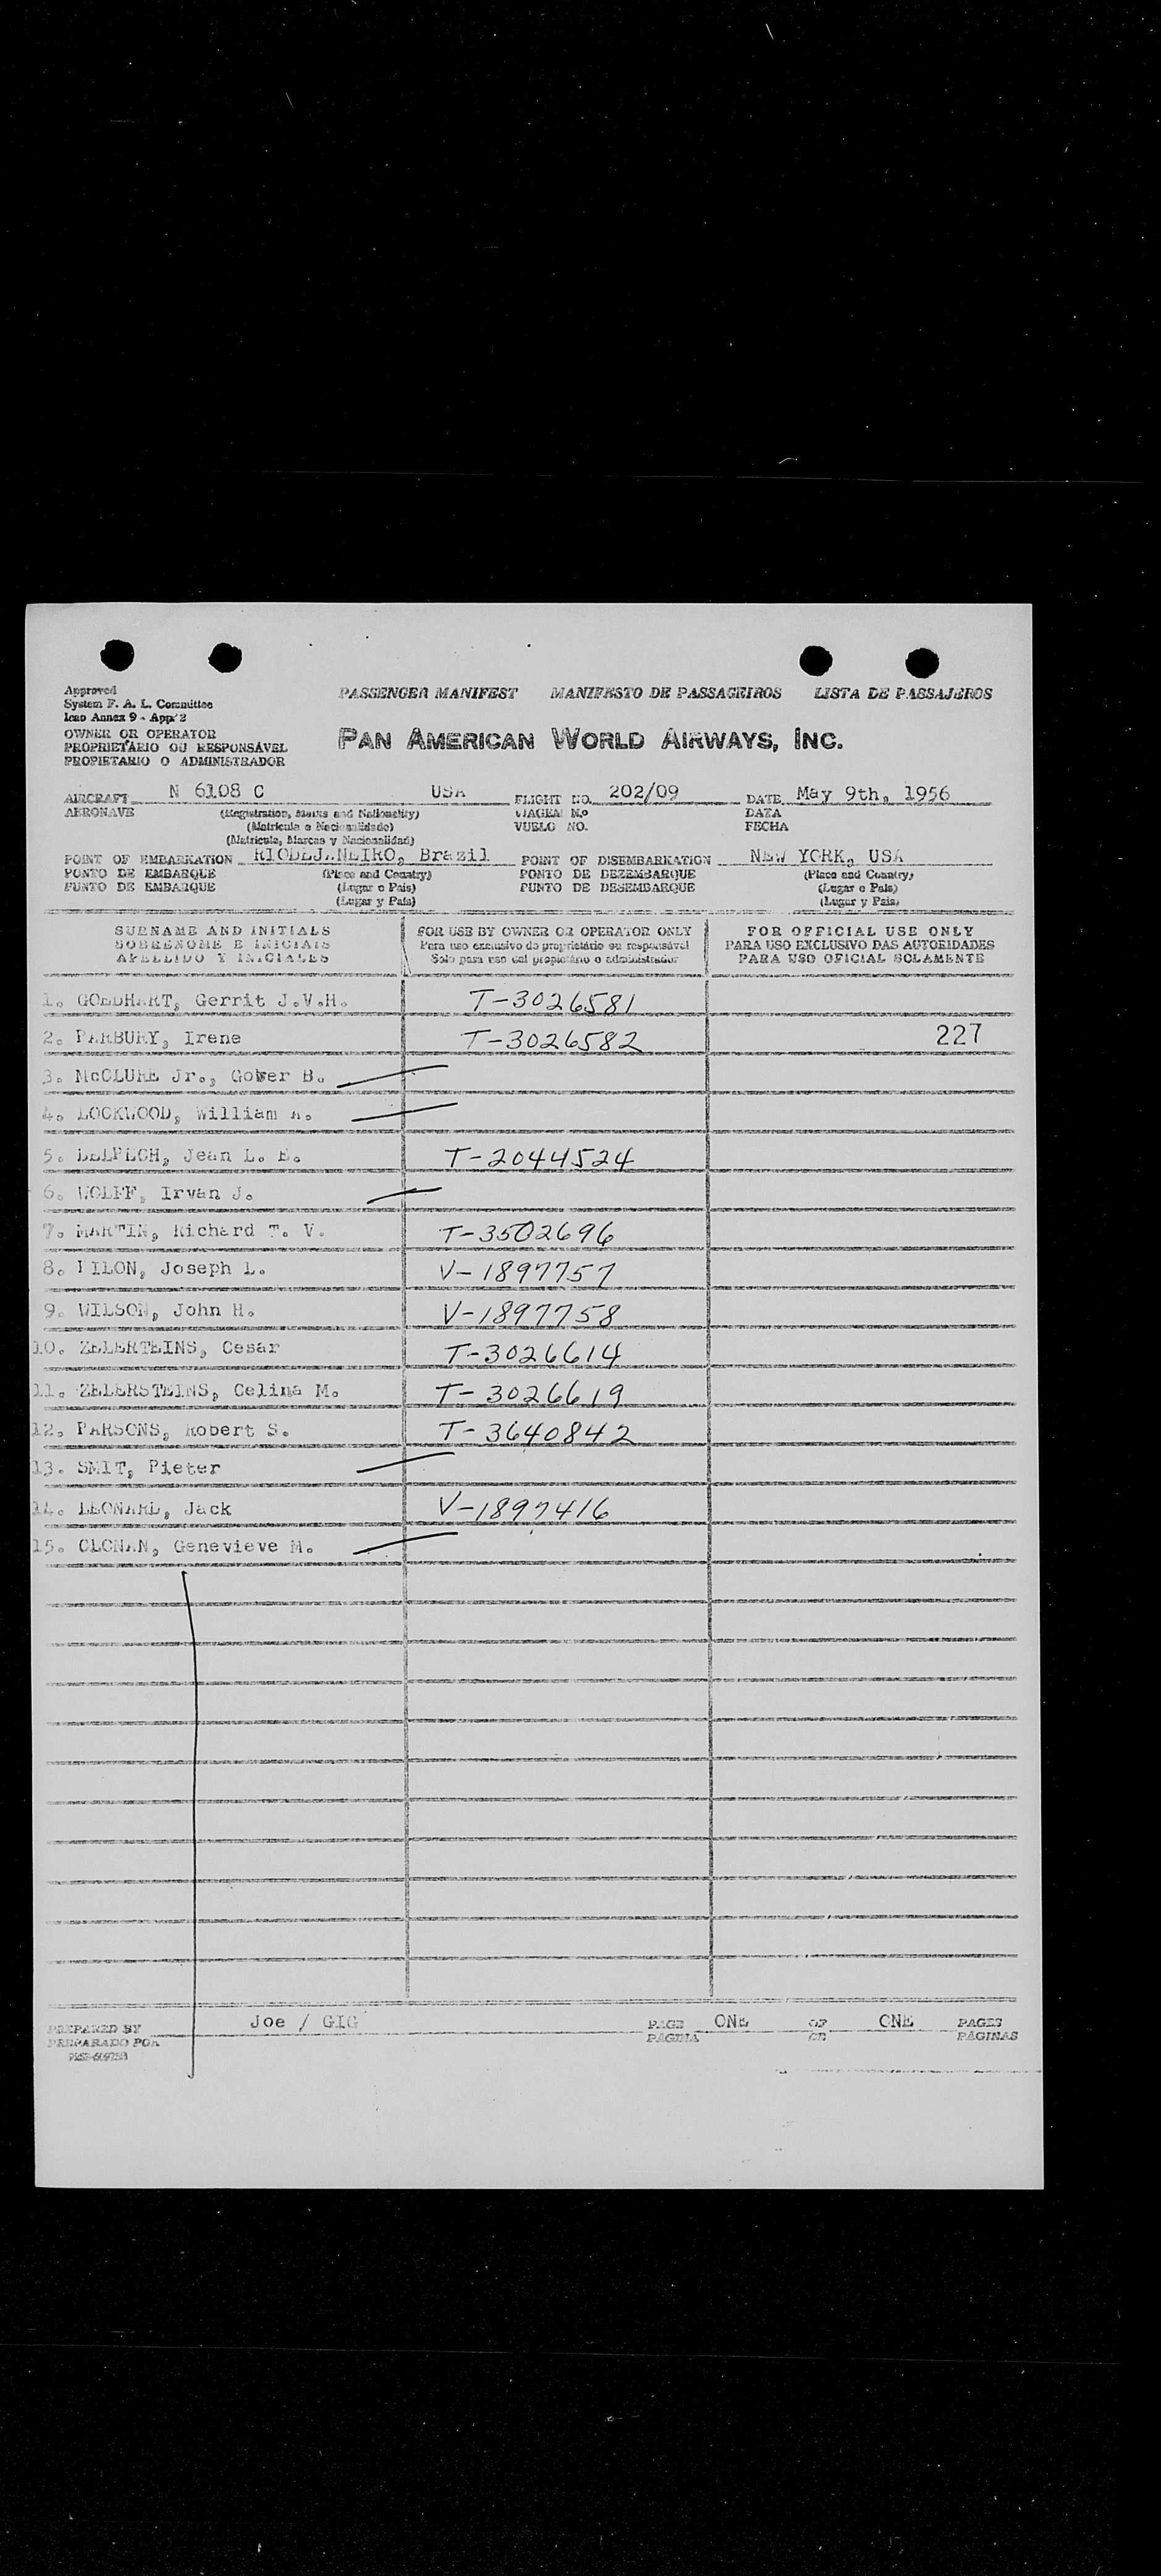 Approved
System F. A. L. Committee
Icao Annex 9 - App. 2
OWNER OR OPERATOR
PROPRIETÁRIO OU RESPONSÁVEL
PROPIETARIO O ADMINISTRADOR
PASSENGER MANIFEST MANIFESTO DE PASSAGEIROS LISTA DE PASSAJEROS
PAN AMERICAN WORLD AIRWAYS, INC.
AIRCRAFT N 6108 C USA FLIGHT NO. 202/09 DATE May 9th, 1956
AERONAVE (Registration, Marks and Nationality) VIAGEM N.º DATA
(Matrícula e Nacionalidade) VUELO NO. FECHA
(Matricula, Marcas y Nacionalidad)
POINT OF EMBARKATION RIODEJANEIRO, Brazil POINT OF DISEMBARKATION NEW YORK, USA
PONTO DE EMBARQUE (Place and Country) PONTO DE DEZEMBARQUE (Place and Country)
PUNTO DE EMBARQUE (Lugar e País) PUNTO DE DESEMBARQUE (Lugar e País)
(Lugar y País) (Lugar y País)
SURNAME AND INITIALS FOR USE BY OWNER OR OPERATOR ONLY FOR OFFICIAL USE ONLY
SOBRENOME E INICIAIS Para uso exclusivo do proprietário ou responsável PARA USO EXCLUSIVO DAS AUTORIDADES
APELLIDO Y INICIALES Solo para uso del propietario o administrador PARA USO OFICIAL SOLAMENTE
1. GOEDHART, Gerrit J.V.H. T-3026581
2. PARBURY, Irene T-3026582 227
3. McCLURE Jr., Gower B.
4. LOCKWOOD, William A.
5. DELPECH, Jean L. E. T-2044524
6. WOLFF, Irvan J.
7. MARTIN, Richard T. V. T-3502696
8. PILON, Joseph L. V-1897757
9. WILSON, John H. V-1897758
10. ZELERTEINS, Cesar T-3026614
11. ZELERSTEINS, Celina M. T-3026619
12. PARSONS, Robert S. T-3640842
13. SMIT, Pieter
14. LEONARD, Jack V-1897416
15. CLONAN, Genevieve M.
PREPARED BY Joe / GIG PAGE ONE OF ONE PAGES
PREPARADO POR PÁGINA DE PÁGINAS